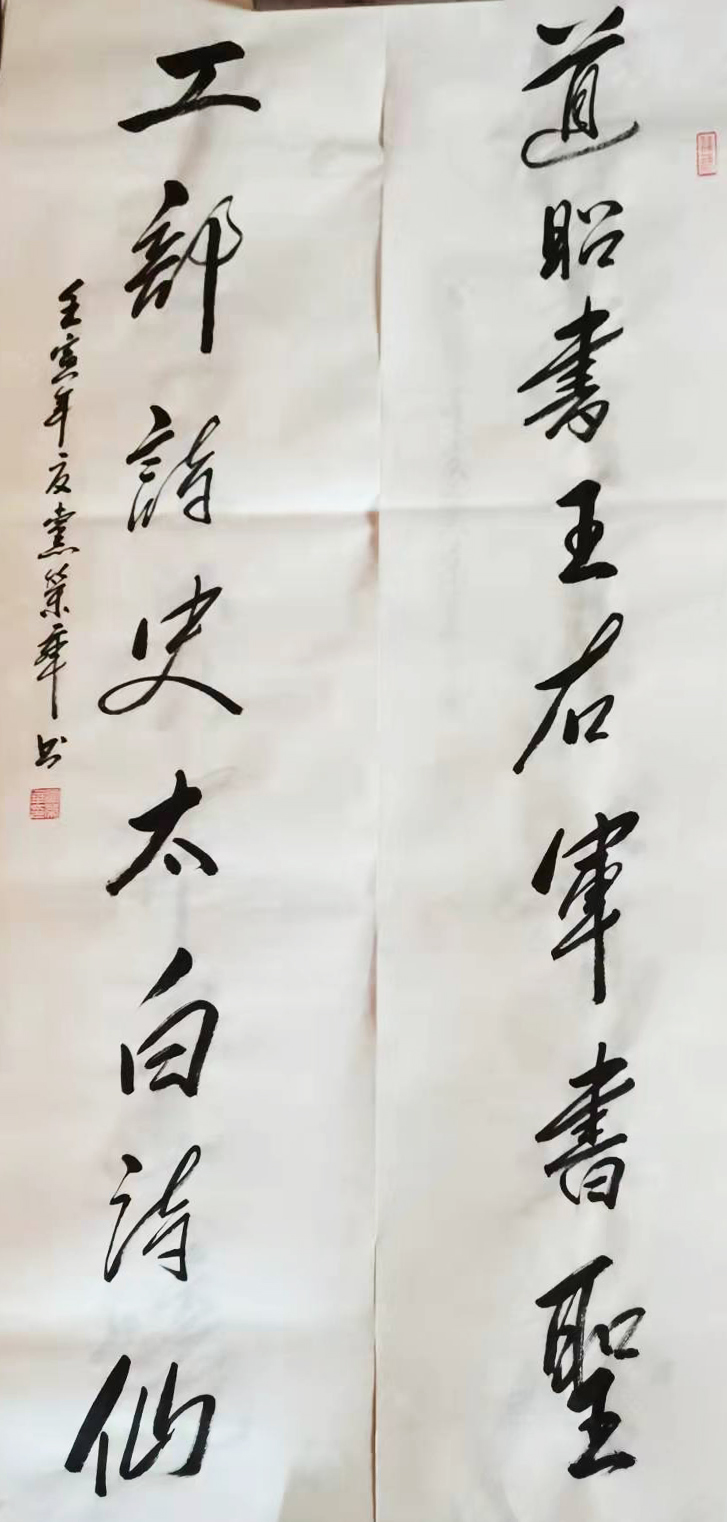 道昭書王右軍書聖
工部詩史太白詩仙
壬寅年夏党荣華书